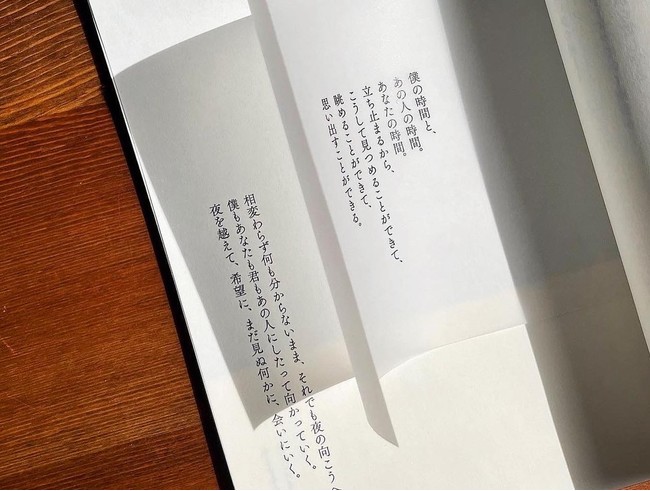 僕の時間と、
あの人の時間。
あなたの時間。
立ち止まるから、
こうして見つめることができて、
眺めることができて、
思い出すことができる。
相変わらず何も分からないまま、それでも夜の向こうへ
僕もあなたも君もあの人にしたって向かっていく。
夜を越えて、希望に、まだ見ぬ何かに、会いにいく。